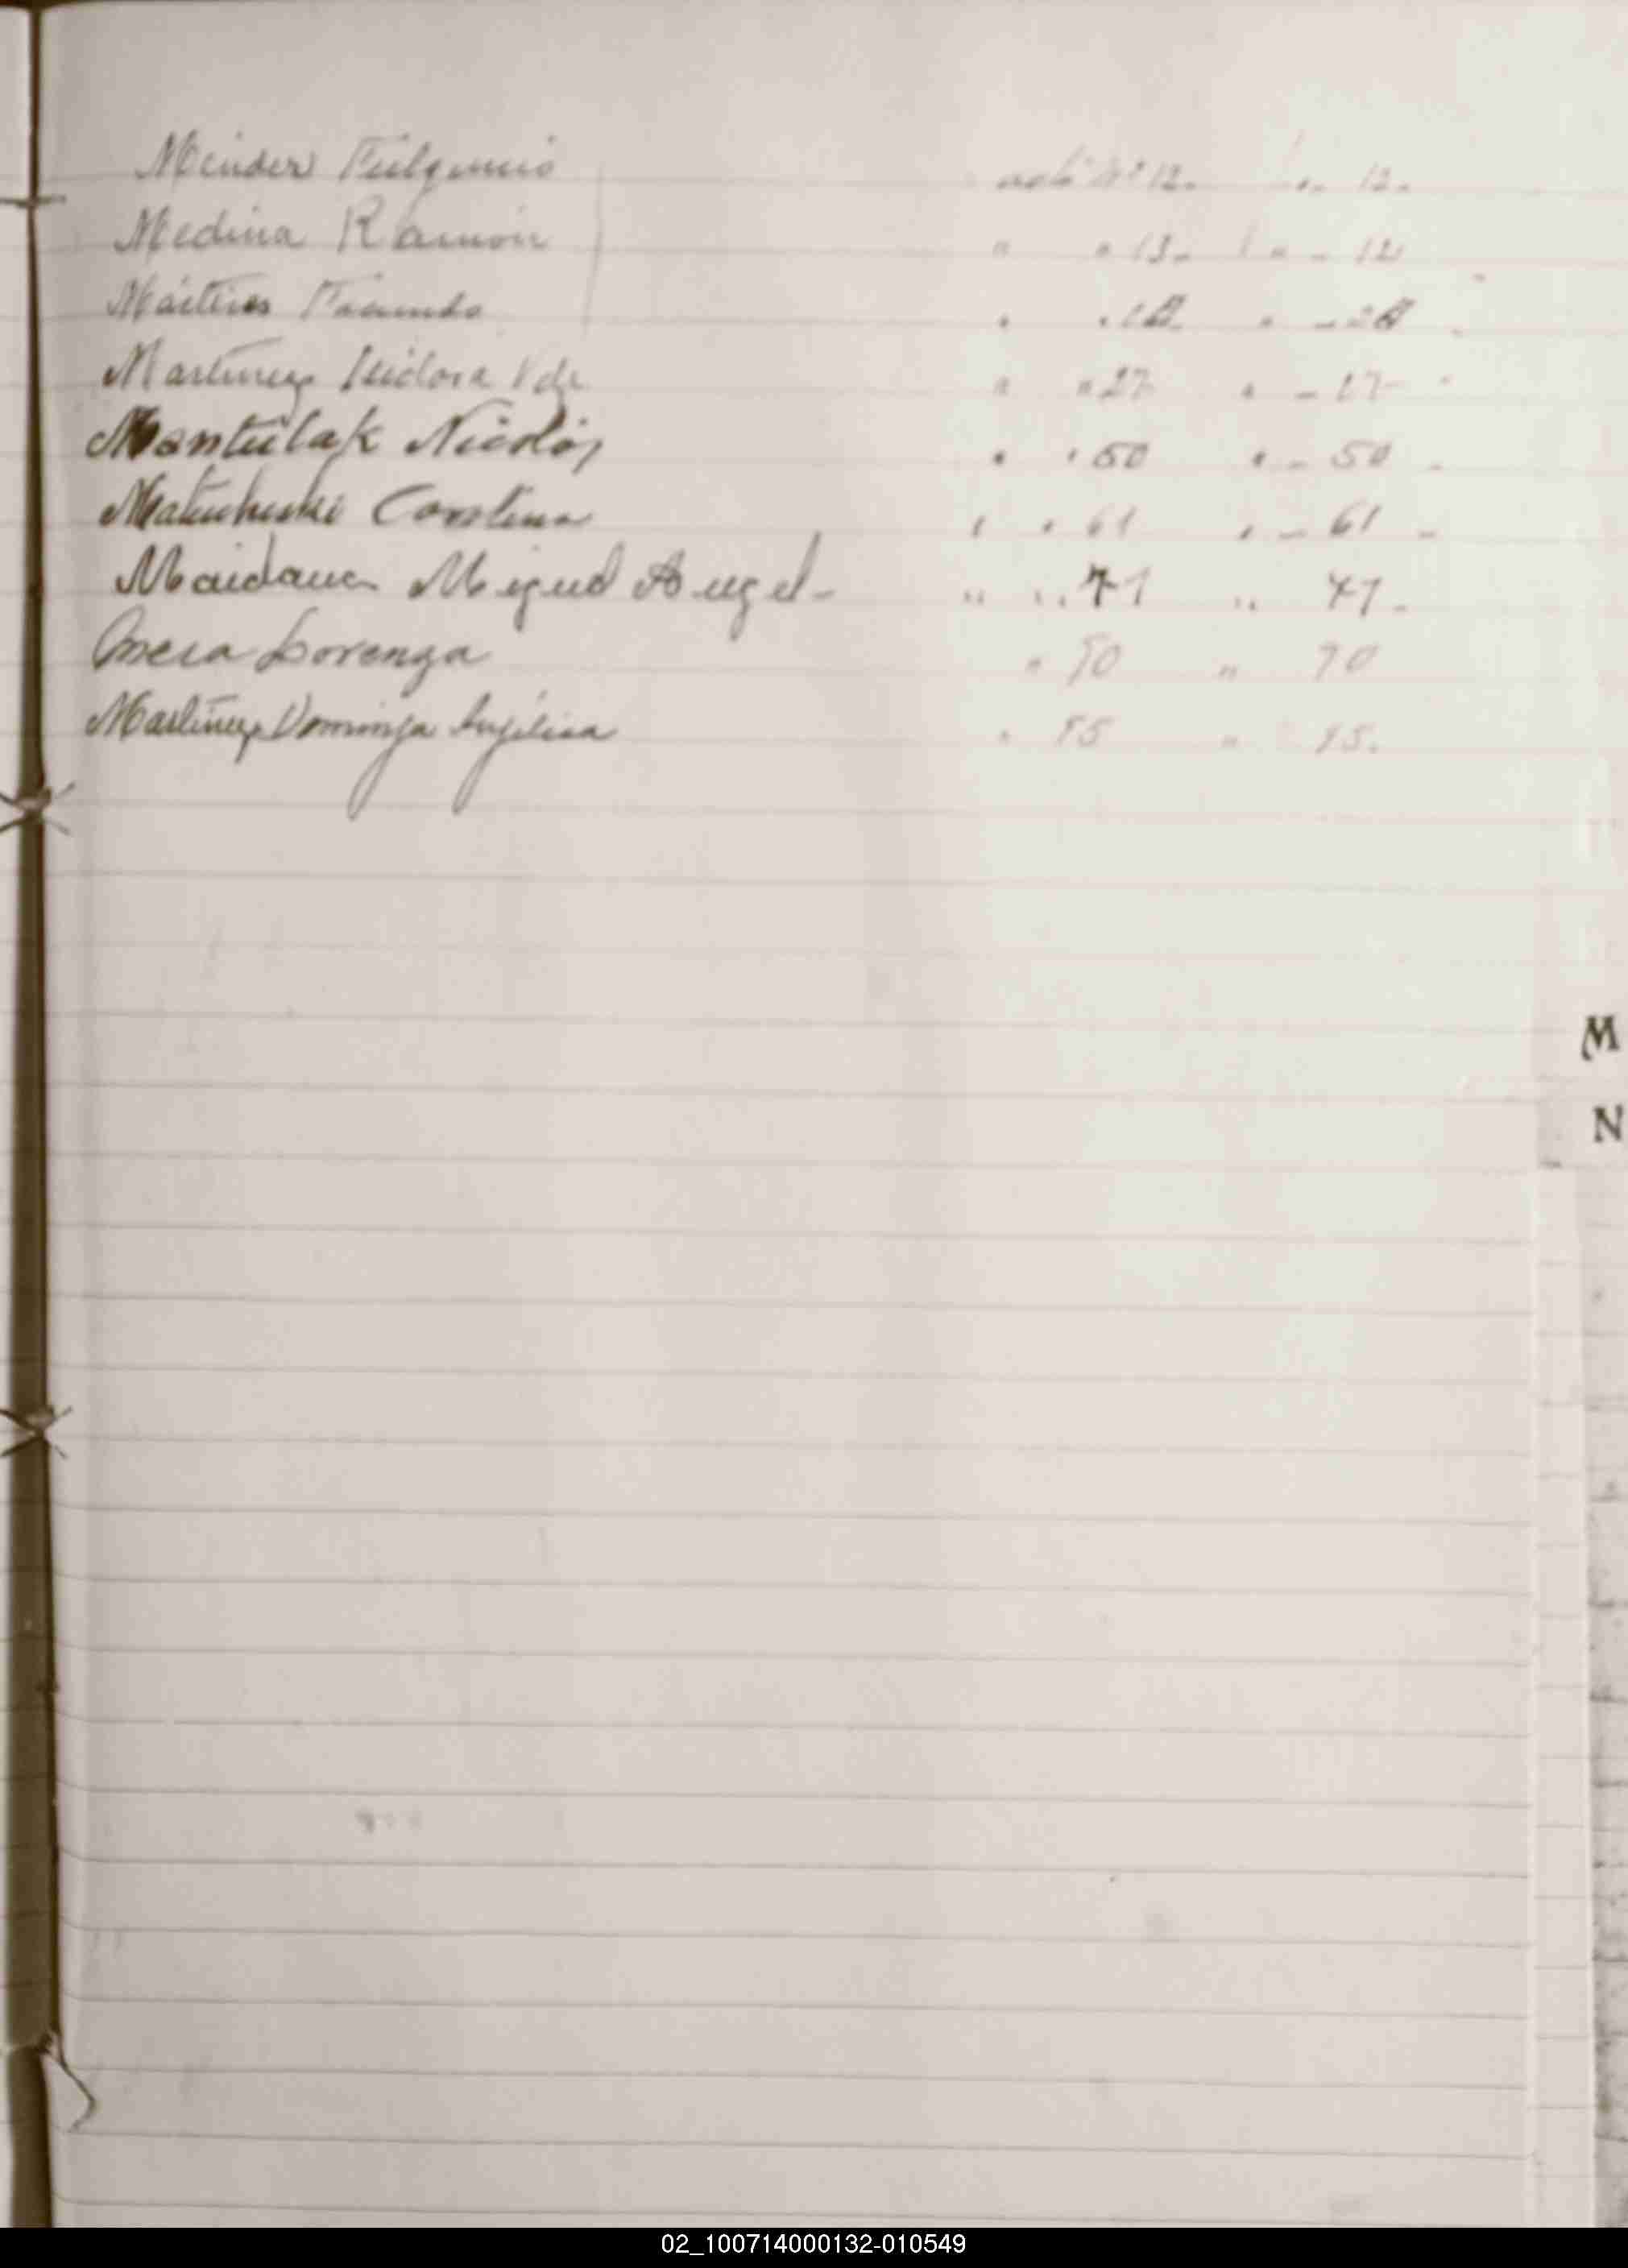 Mendez Fulgencio acta Nº 12. " 12.
Medina Ramón " " 13. " - 12
Martires Facundo
Martinez Isidora Vda " " 27 " - 27 -
Mantulak Nicolás " " 50 " - 50 -
Carolina " " 61 " - 61 -
Maidana Miguel Angel - " " 71 " 71.
Mesa Lorenza " 90 " 90
Martinez Dominga Anjélica " 95 " 95.
M
N
02_100714000132-010549